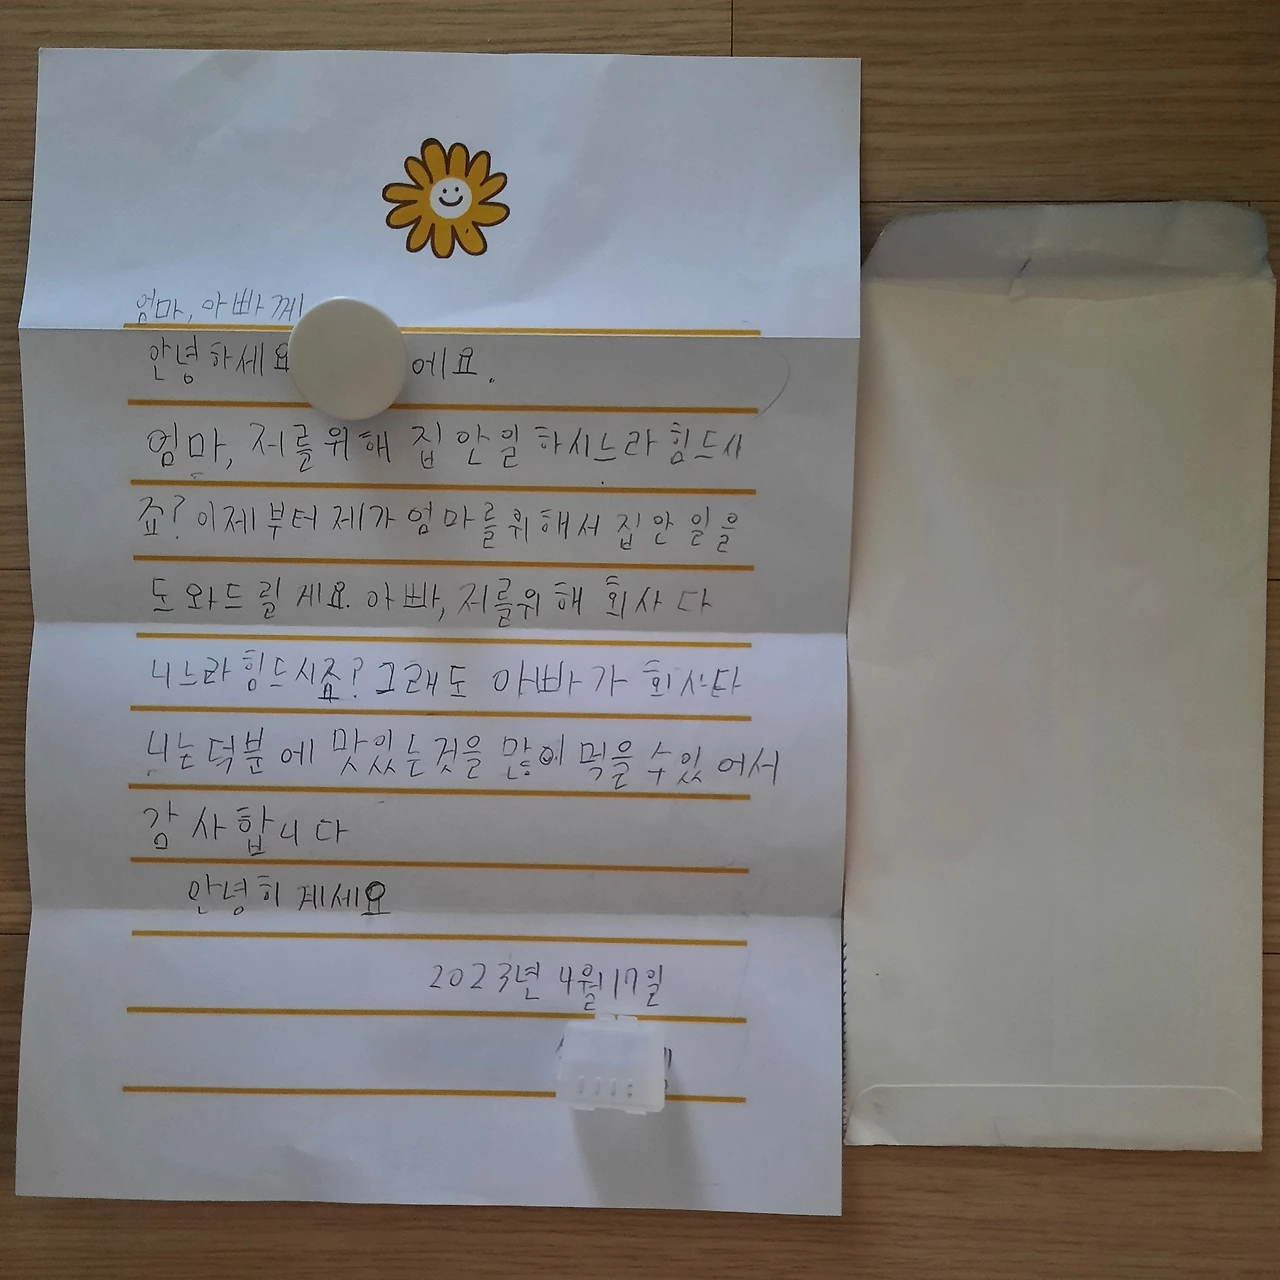 엄마, 아빠께
안녕하세요 에요.
엄마, 저를위해 집안일 하시느라 힘드시
죠? 이제부터 제가 엄마를위해서 집안일을
도와드릴게요. 아빠, 저를위해 회사다
니느라 힘드시죠? 그래도 아빠가 회사다
니는덕분에 맛있는것을 많이 먹을수있어서
감사합니다
안녕히 계세요
2023년 4월17일